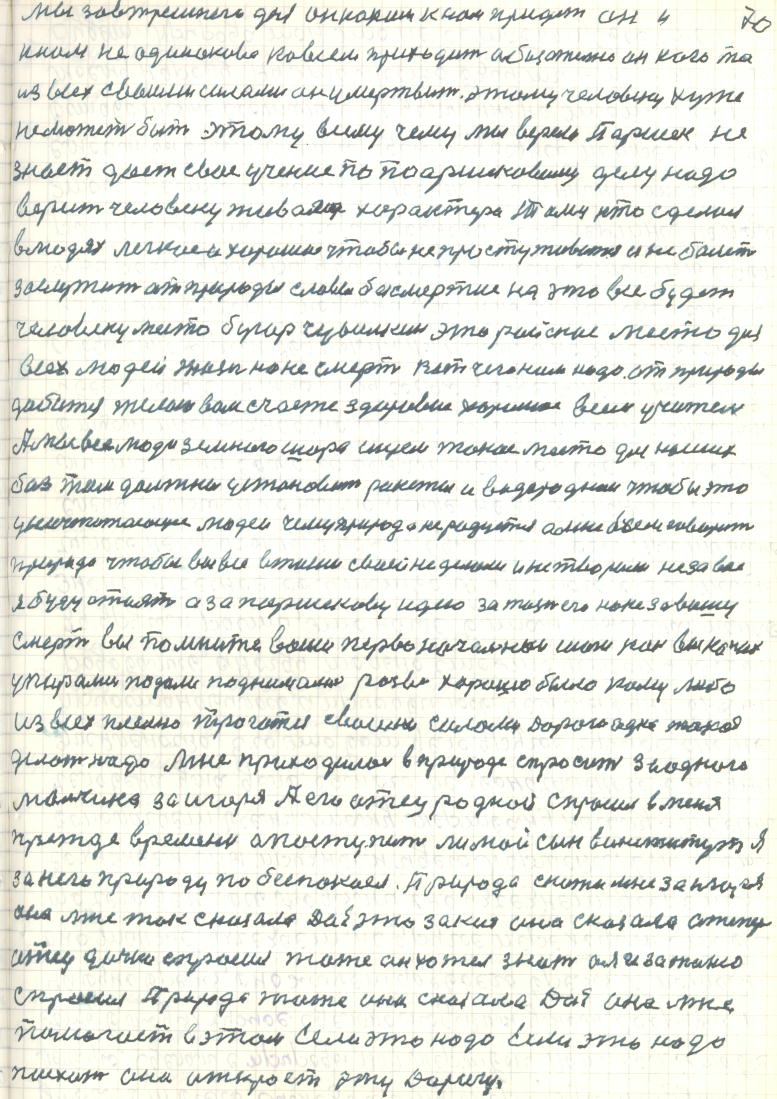 мы завтрешнего дня он к нам придет он к 70
нам не одинаково ковсем приходит а бязательно он кого та
из всех своими силами он умертвит. этому человеку хуже
не может быт этому всиму чему мы верем Паршек не
знает дает свое учение По Поаршековому делу надо
верит человеку живого характера Тому кто сделал
в людях легкое а хорошое чтобы не простуживатся и не болеть
заслужит от природы слова бесмертие на это все будет
человеку место бугор чувилкин это райское место для
всех людей жизни но не смерт вот чего нам надо. от природы
добится желаю вам счастье здоровие хорошое всем учителя
А мы все люди земного шора ищем такое место для наших
баз там должны установит ракеты и водородная чтобы это
людей чему природа не радуется а мне говорит
природа чтобы вы все в жизни своей не делали и не творили не за вас
я буду стоят а за паршекову идею за жизнь его но не за вашу
смерт вы помните ваши первоначальныи шаги как вы на них
упирали подали поднимались розве хорошо было кому любо
из всех плохо трогатся своими силами Дорога одна такая
делат надо Мне приходилос в природе спросит за одного
малчика за игоря А его отец родной спросил в меня
прежде времени а поступит ли мой сын в институт Я
за него природу побеспокоел. Природа скажи мне за игоря
она мне так сказала Да это за кия она сказала а теперь
отец дочки спросил тоже он хотел знат а я и за тано
спросил Природа тоже она сказала Да она мне
помогает в этом Если это надо Если это надо
поехат она откроет эту Дорогу.